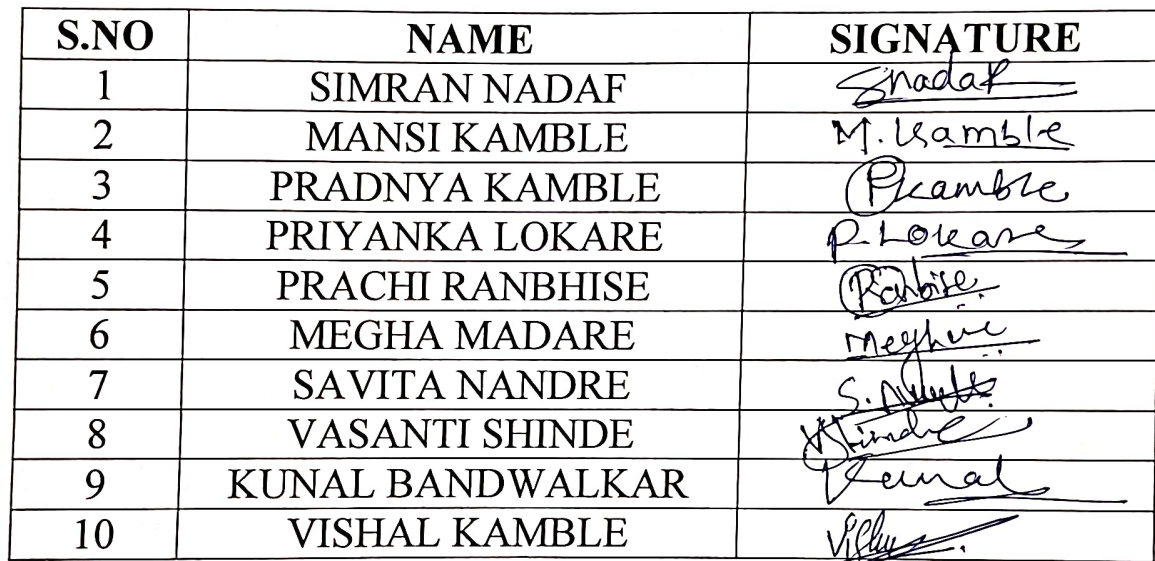 S.NO NAME SIGNATURE
1 SIMRAN NADAF Snadaf
2 MANSI KAMBLE M. Kamble
3 PRADNYA KAMBLE PKamble
4 PRIYANKA LOKARE P. Lokare
5 PRACHI RANBHISE Ranbise
6 MEGHA MADARE
7 SAVITA NANDRE S.
8 VASANTI SHINDE VShinde
9 KUNAL BANDWALKAR Kunal
10 VISHAL KAMBLE